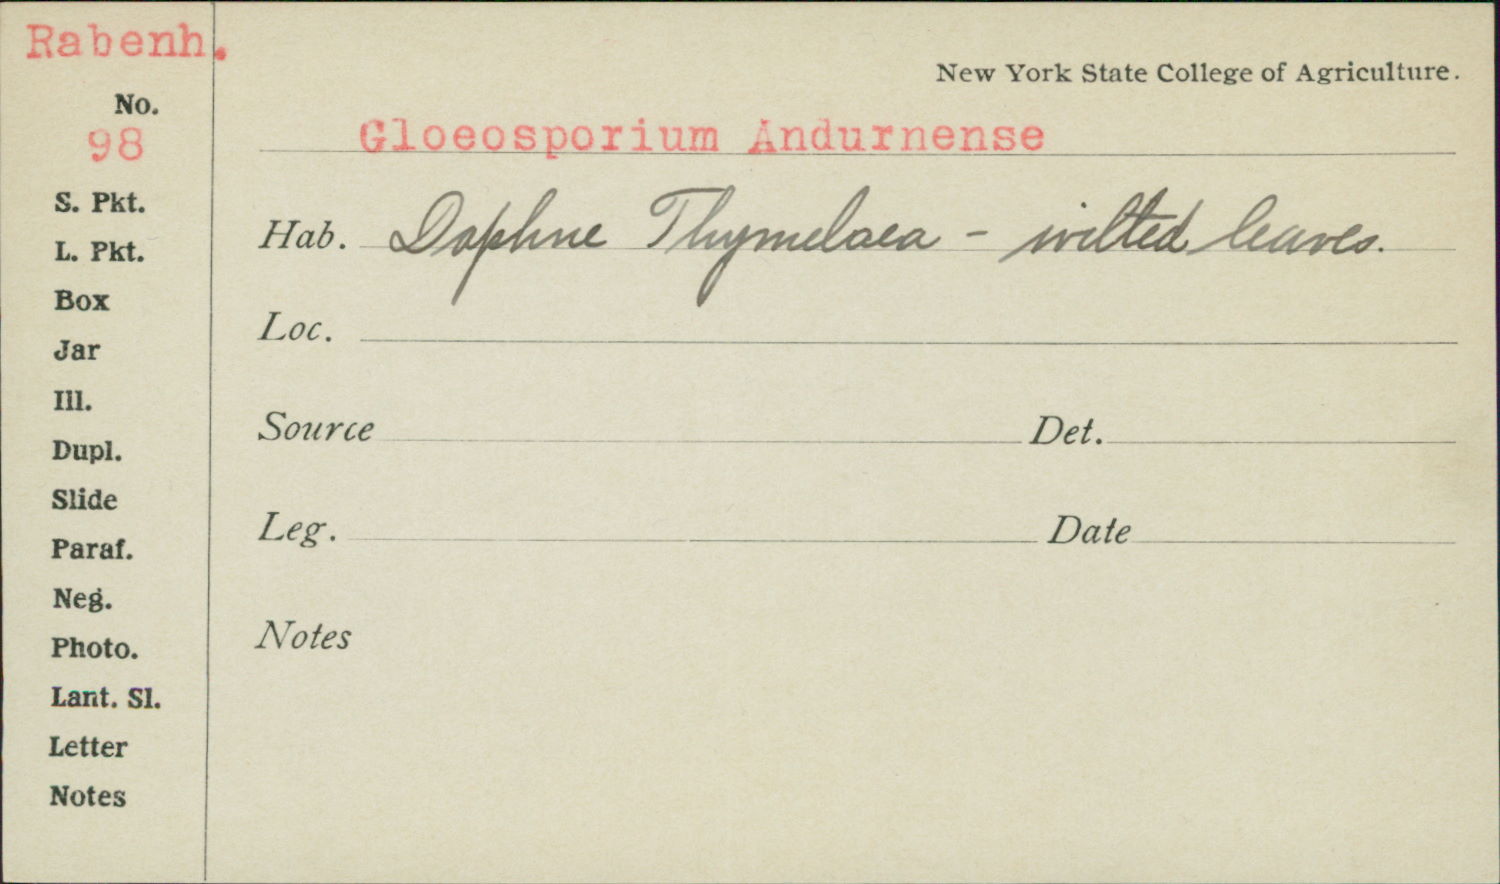 Rabenh.
No.
98
S. Pkt.
L. Pkt.
Box
Jar
Ill.
Dupl.
Slide
Paraf.
Neg.
Photo.
Lant. Sl.
Letter
Notes
New York State College of Agriculture.
Gloeosporium Andurnense
Hab. Daphne Thymelaea - wilted leaves.
Loc.
Source Det.
Leg. Date
Notes